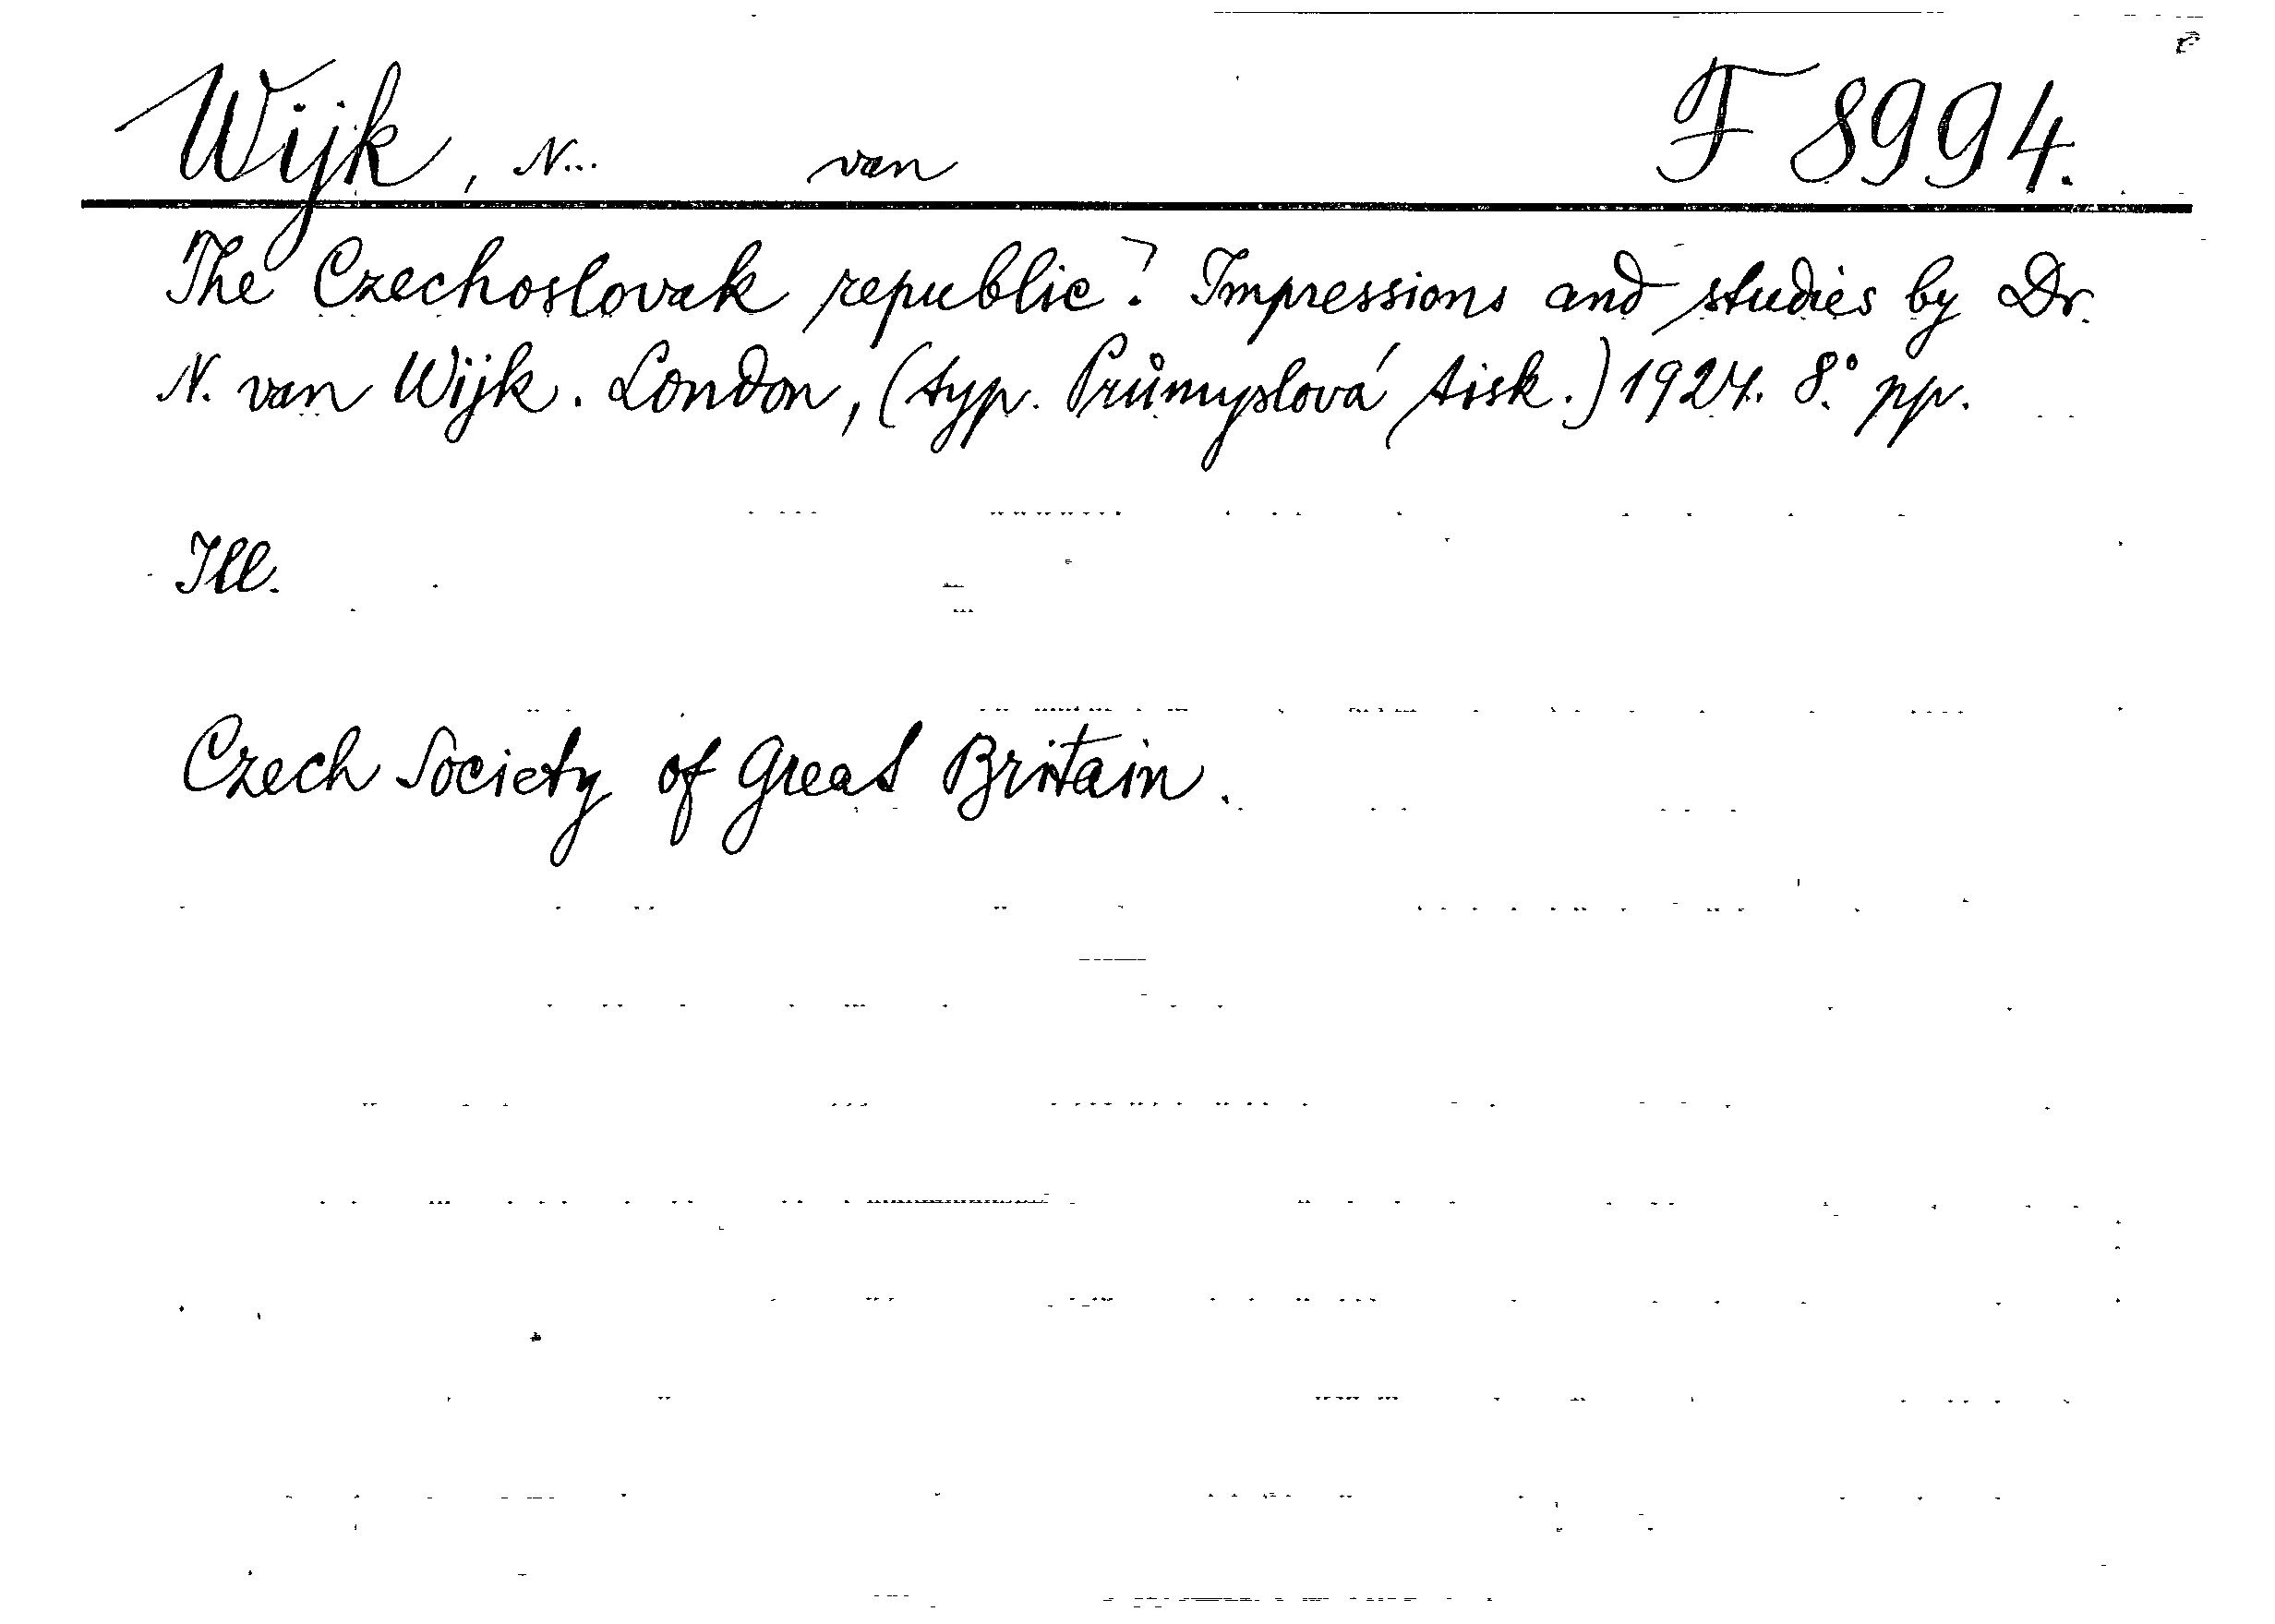 Wijk, N... van F 8994.
The Czechoslovak republic. Impressions and studies by Dr.
N. van Wijk. London, (typ. Průmyslová tisk.) 1924. 8° pp.
Ill.
Czech Society of Great Britain.